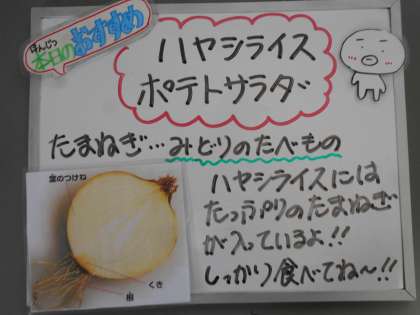 ほんじつ
本日のおすすめ
ハヤシライス
ポテトサラダ
たまねぎ…みどりのたべもの
ハヤシライスには
たっぷりのたまねぎ
が入っているよ!!
しっかり食べてね〜!!
葉のつけね
くき
根